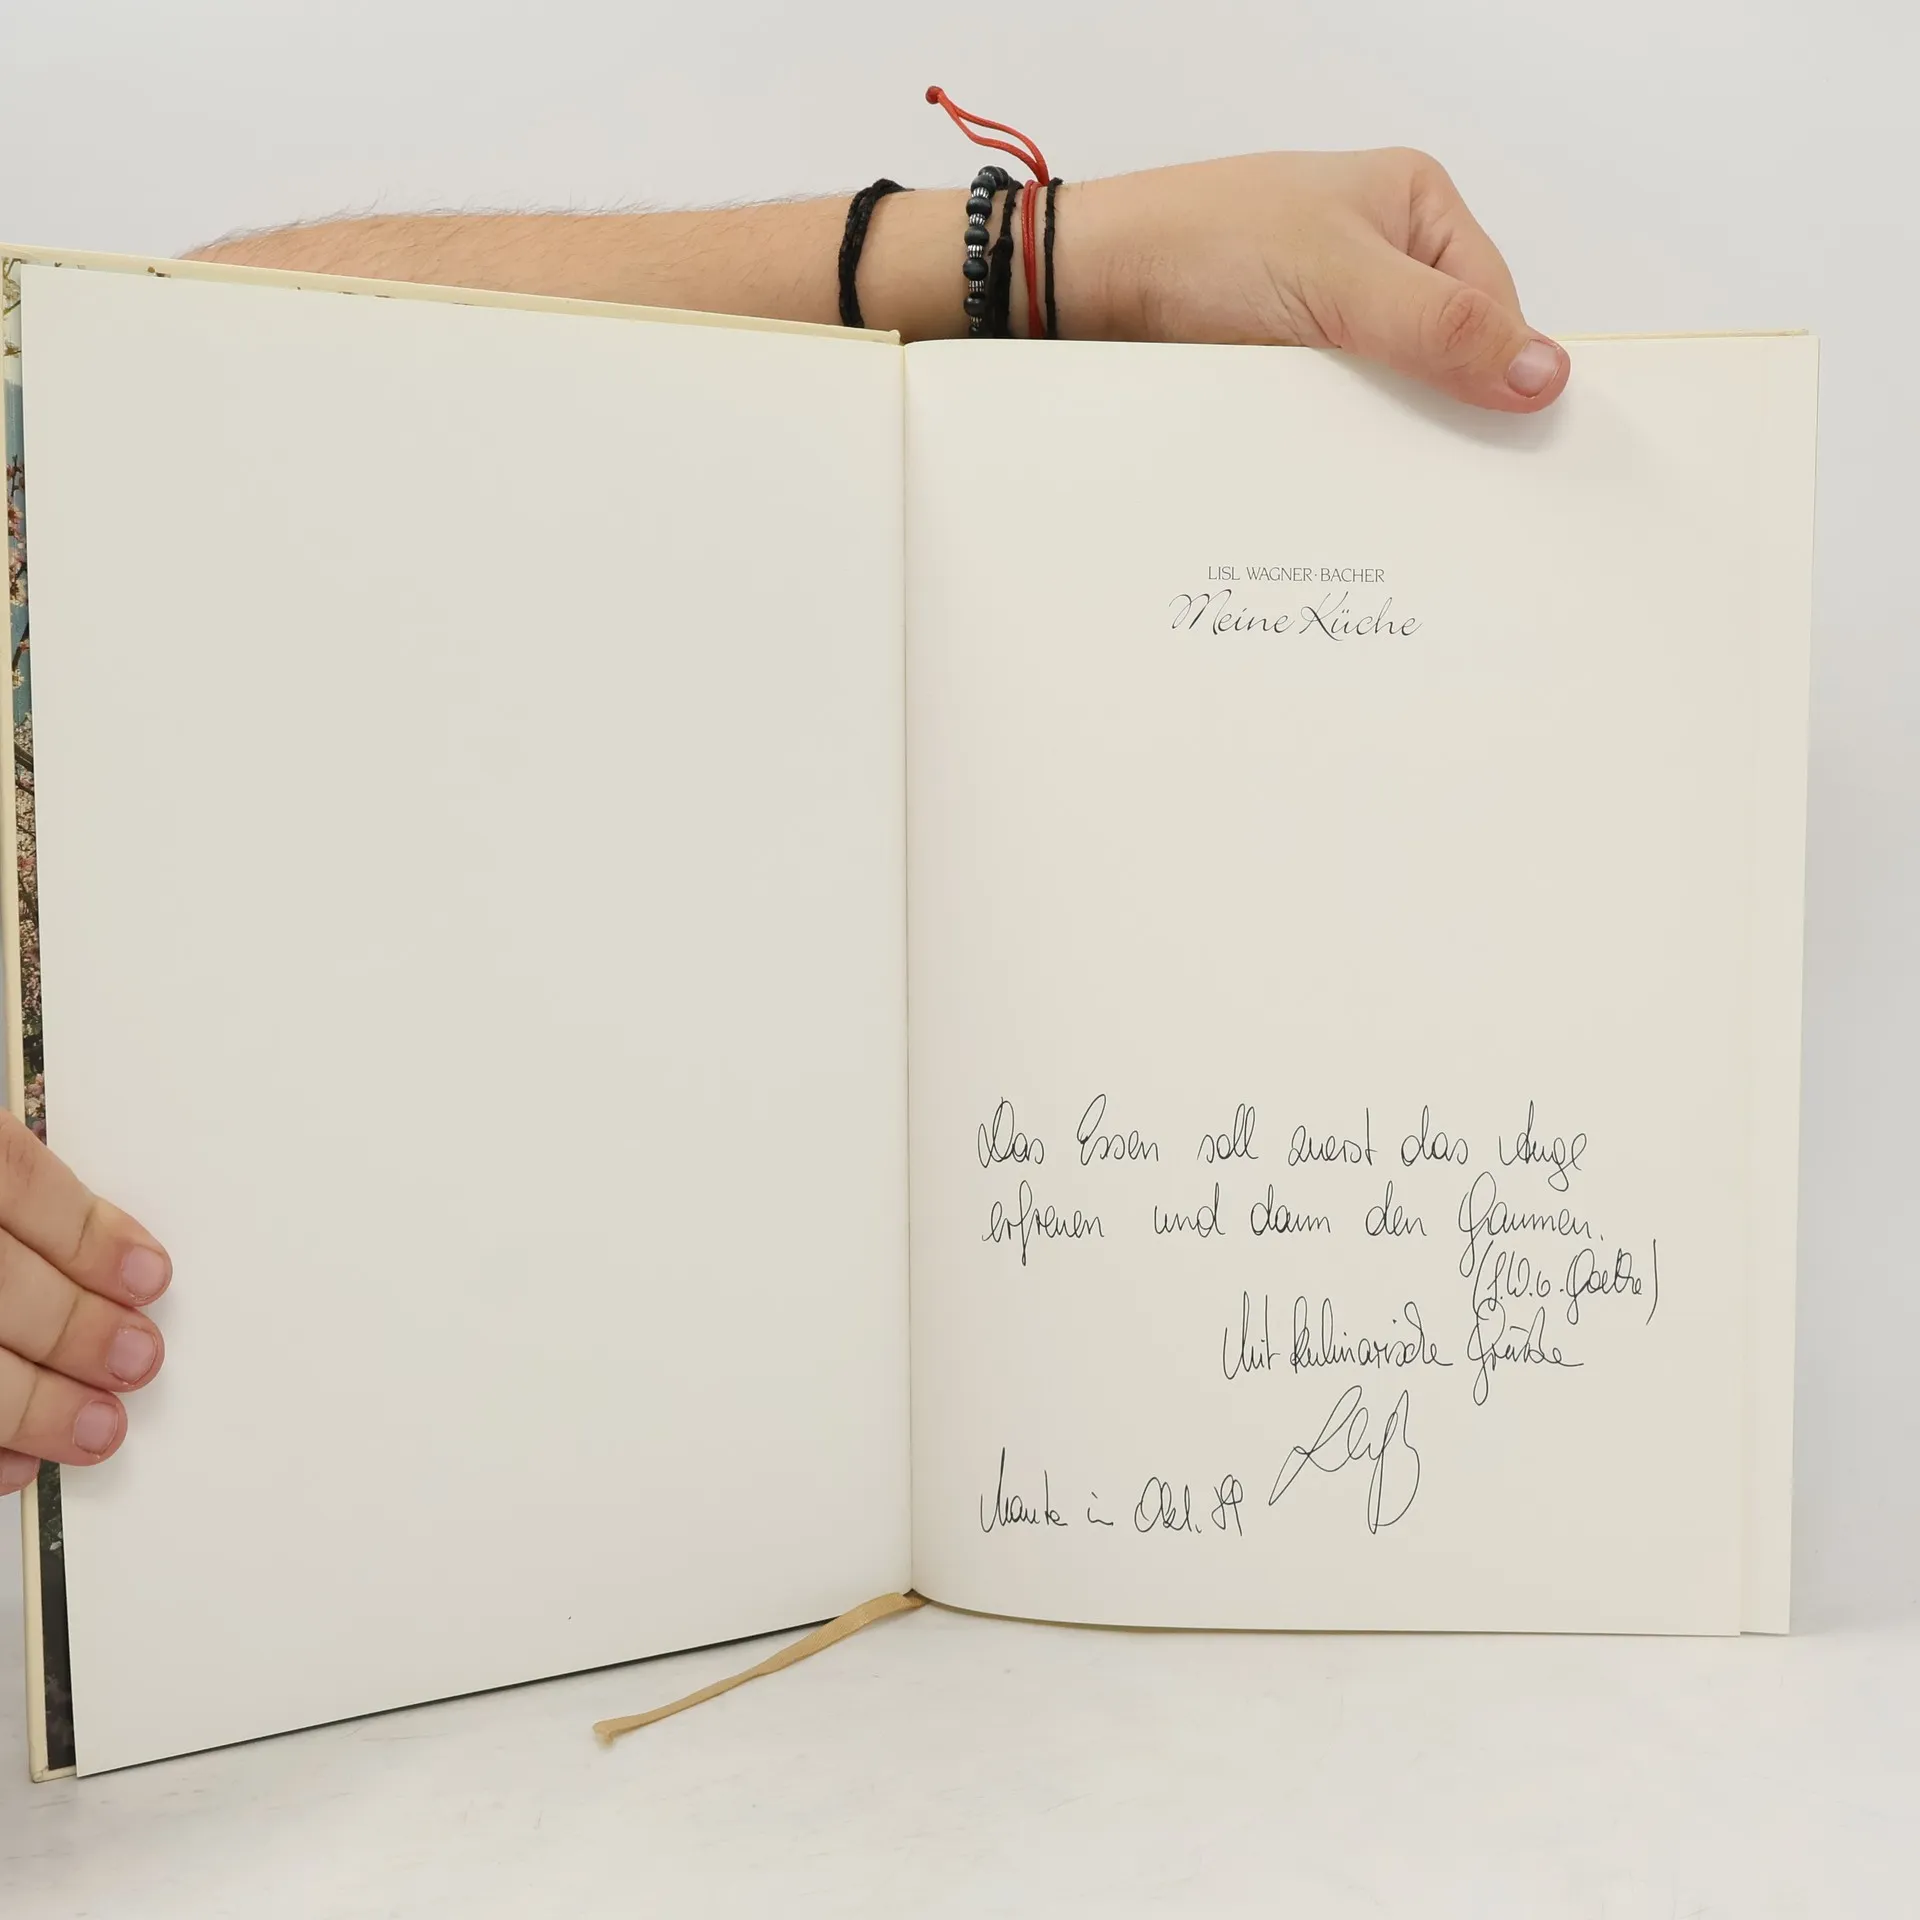 LISL WAGNER·BACHER
Meine Küche
Das Essen soll zuerst das Auge
erfreuen und dann den Gaumen.
(J.W.v. Goethe)
Mit kulinarische Grüße
in Okt. 89